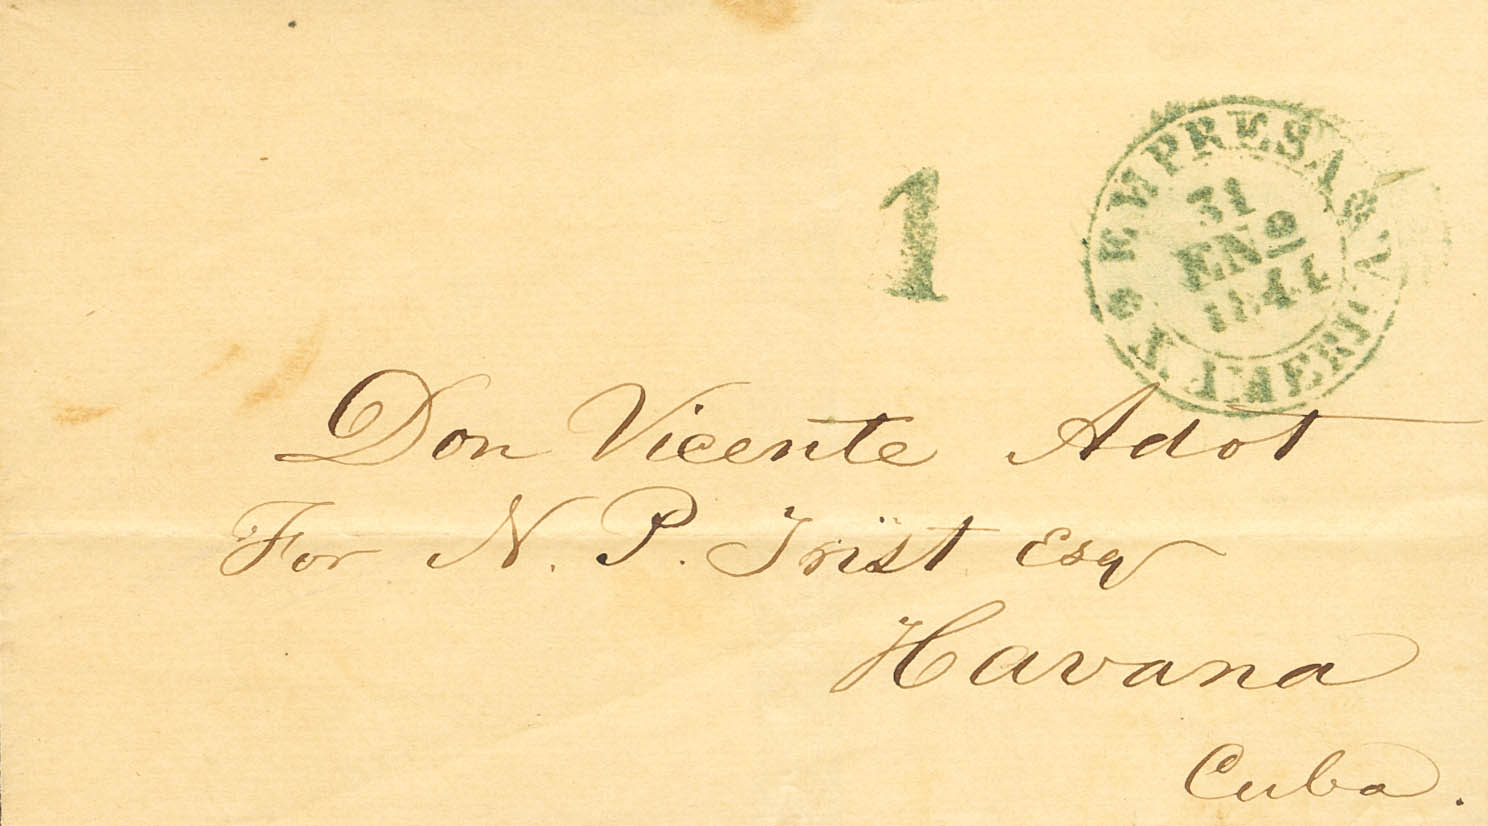 EMPRESA
31
ENº
1841
1
Don Vicente Adot
For N. P. Trist Esq
Havana
Cuba.